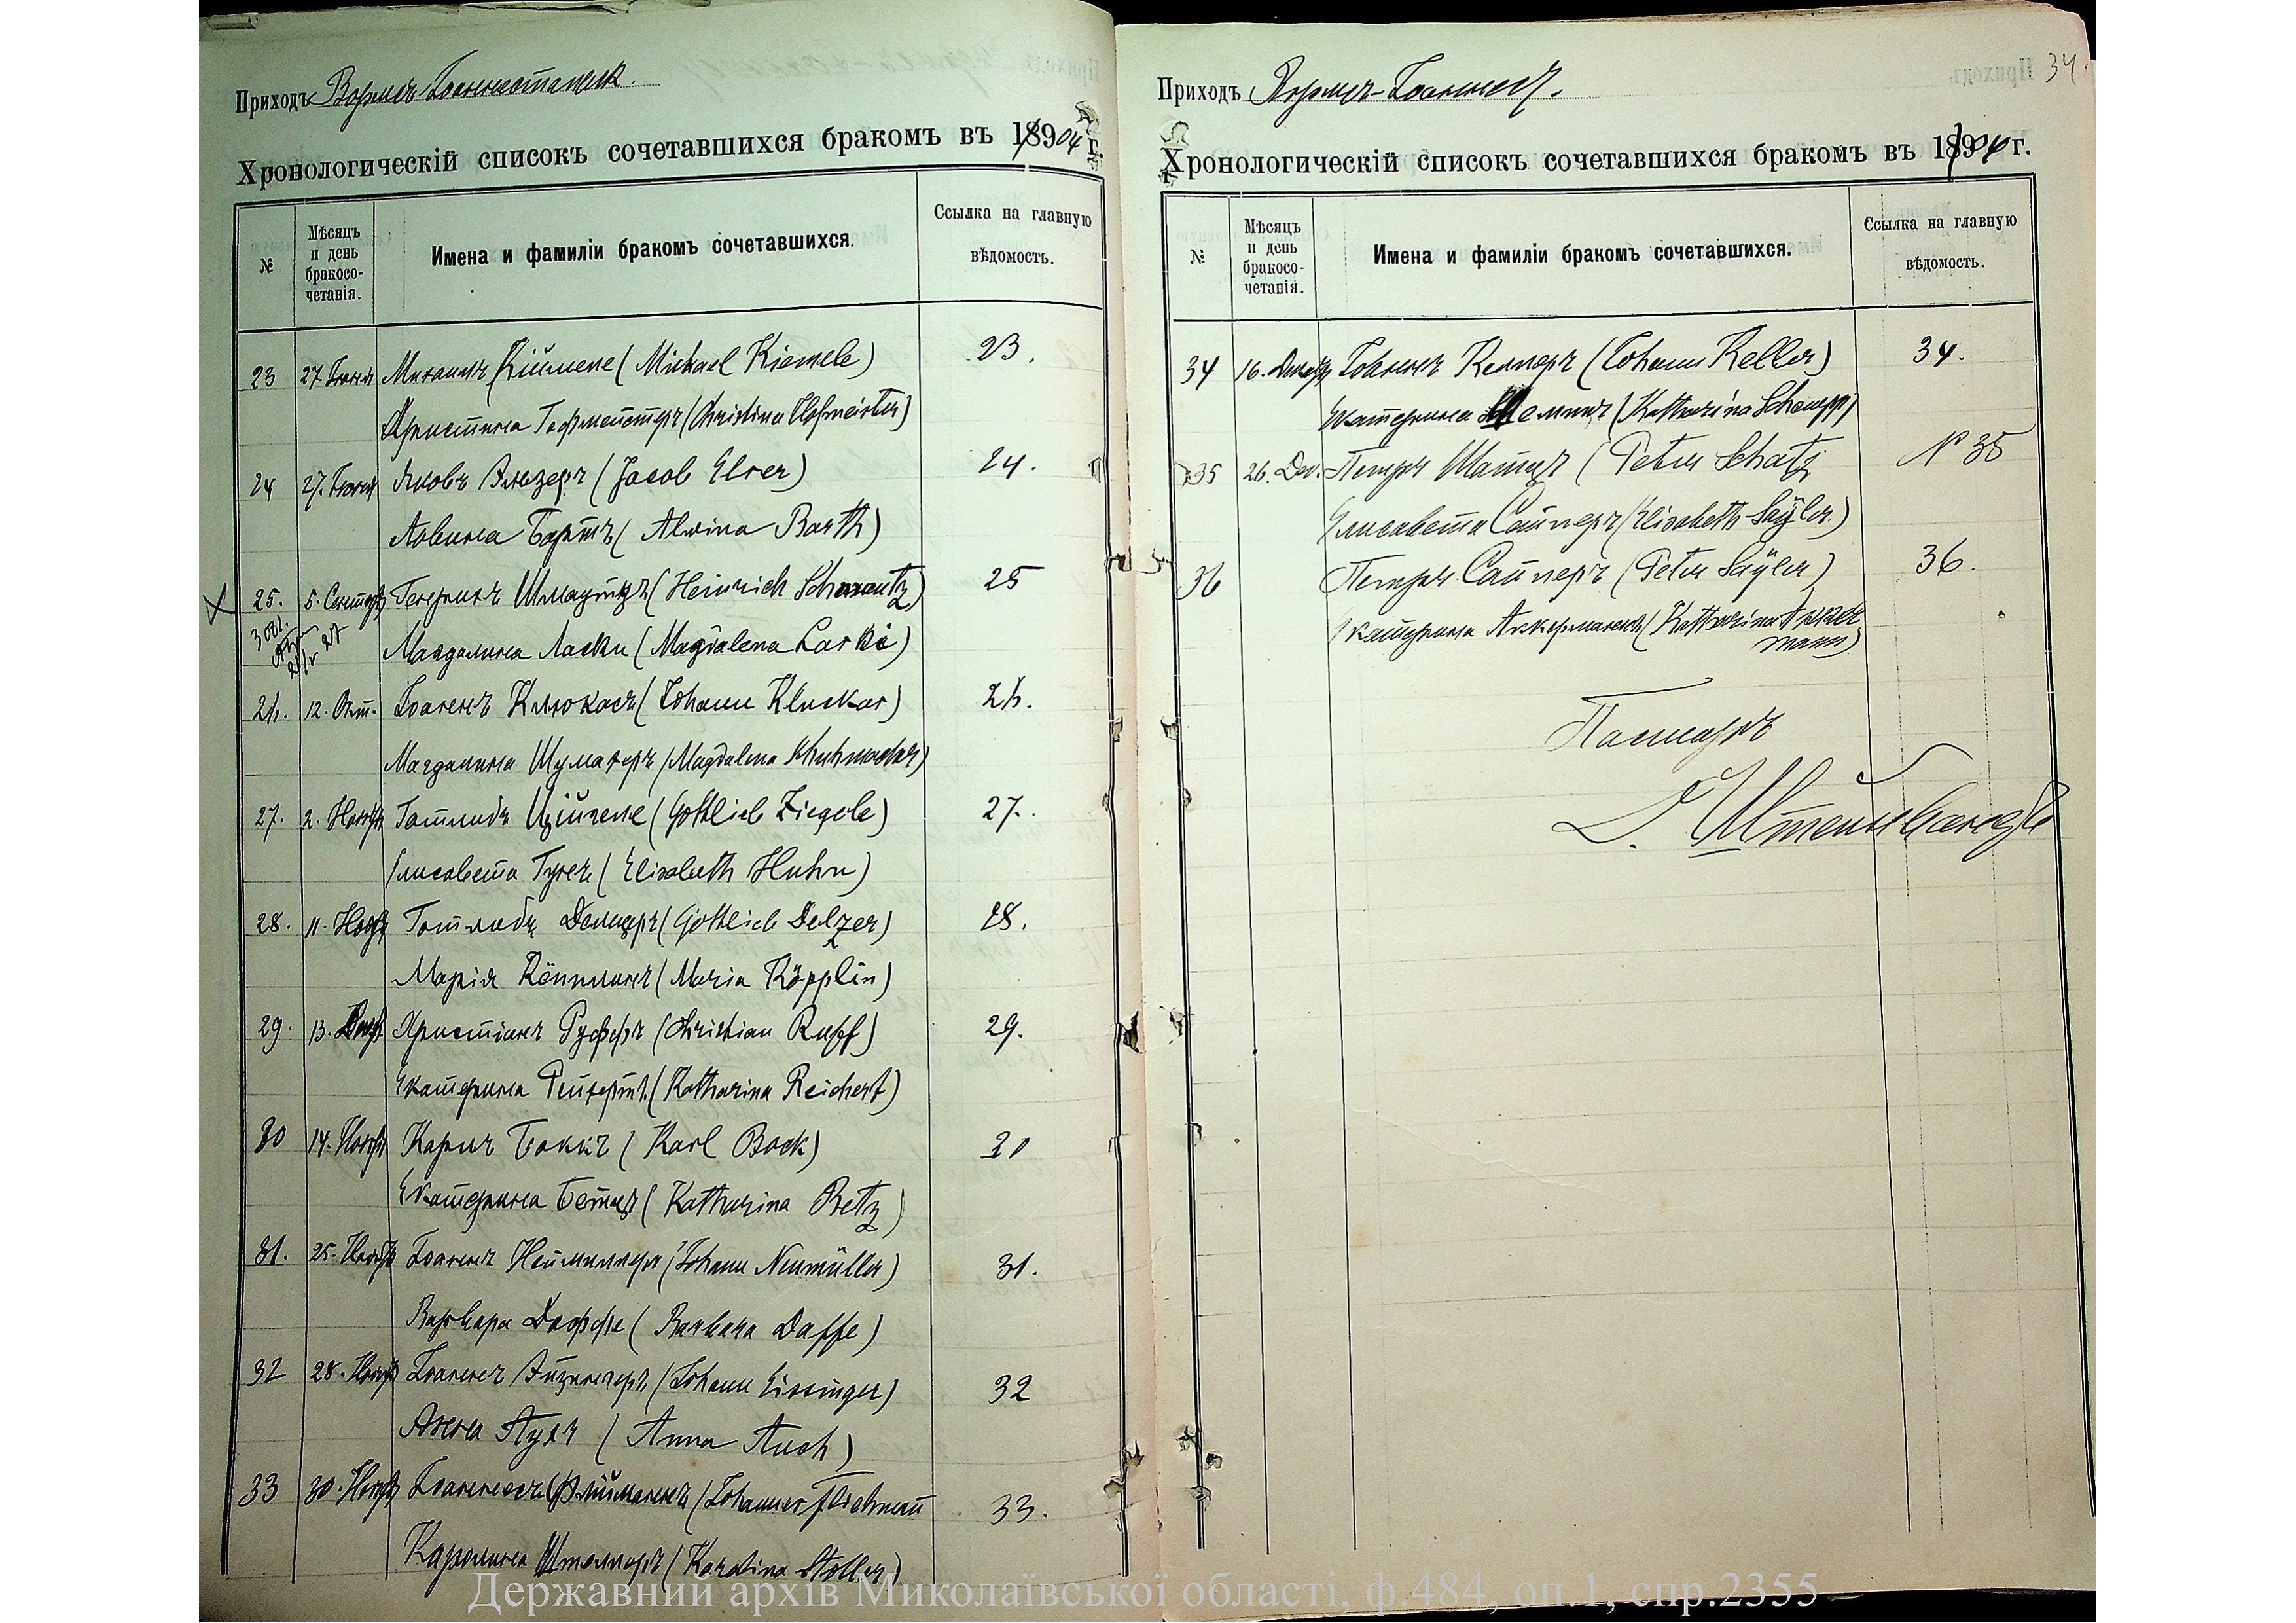 Приходъ Вормсъ-Іоганнесталь.
Хронологическій списокъ сочетавшихся бракомъ въ 1904 г.
№
Мѣсяцъ и день бракосо-четанія.
Имена и фамиліи бракомъ сочетавшихся.
Ссылка на главную вѣдомость.
23 27 Іюня Михаилъ Кіймеле (Michael Kiemele) 23.
Христина Гофмейстеръ (Christina Hofmeister)
24 27. Іюня Яковъ Эльзеръ (Jacob Elser) 24.
Алвина Бартъ (Alwina Barth)
25. 5. Сентяб. Генрихъ Шмаутцъ (Heinrich Schmautz) 25
Магдалина Ласки (Magdalena Laski)
26. 12. Окт. Іоганнъ Клюкасъ (Johann Kluckas) 26.
Магдалина Шумахеръ (Magdalena Schuhmacher)
27. 2. Ноябр Готлибъ Ційгеле (Gottlieb Ziegele) 27.
Елисавета Гунъ (Elisabeth Huhn)
28. 11. Нояб Готлибъ Делцеръ (Gottlieb Delzer) 28.
Марія Кёпплинъ (Maria Köpplin)
29. 13. Христіанъ Руффъ (Christian Ruff) 29.
Екатерина Рейхертъ (Katharina Reichert)
30 14. Ноябр Карлъ Боккъ (Karl Bock) 30
Екатерина Бетцъ (Katharina Betz)
31. 25. Ноябр Іоганнъ Неймиллеръ (Johann Neumüller) 31.
Варвара Даффе (Barbara Daffe)
32 28. Ноябр Іоганнъ Эйзингеръ (Johann Eissinger) 32
Анна Аухъ (Anna Auch)
33 30. Ноябр Іоганнесъ Флійманнъ (Johannes 33.
Каролина Штоллеръ (Karolina Stoller)
34
Приходъ Вормсъ-Іоганнес.
Хронологическій списокъ сочетавшихся бракомъ въ 1904 г.
№
Мѣсяцъ и день бракосо-четанія.
Имена и фамиліи бракомъ сочетавшихся.
Ссылка на главную вѣдомость.
34 16. Декабр Іоганнъ Келлеръ (Johann Keller) 34.
Екатерина (Katharina Schempp)
35 26. Дек. Петръ Шатцъ (Peter Schatz № 35
Елисавета Сайлеръ (Elisabeth Säÿler)
36 Петръ Сайлеръ (Peter Säÿler) 36.
Екатерина Аккерманнъ (Katharina Acker
mann)
Пасторъ
Державний архів Миколаївської області, ф.484, оп.1, спр.2355